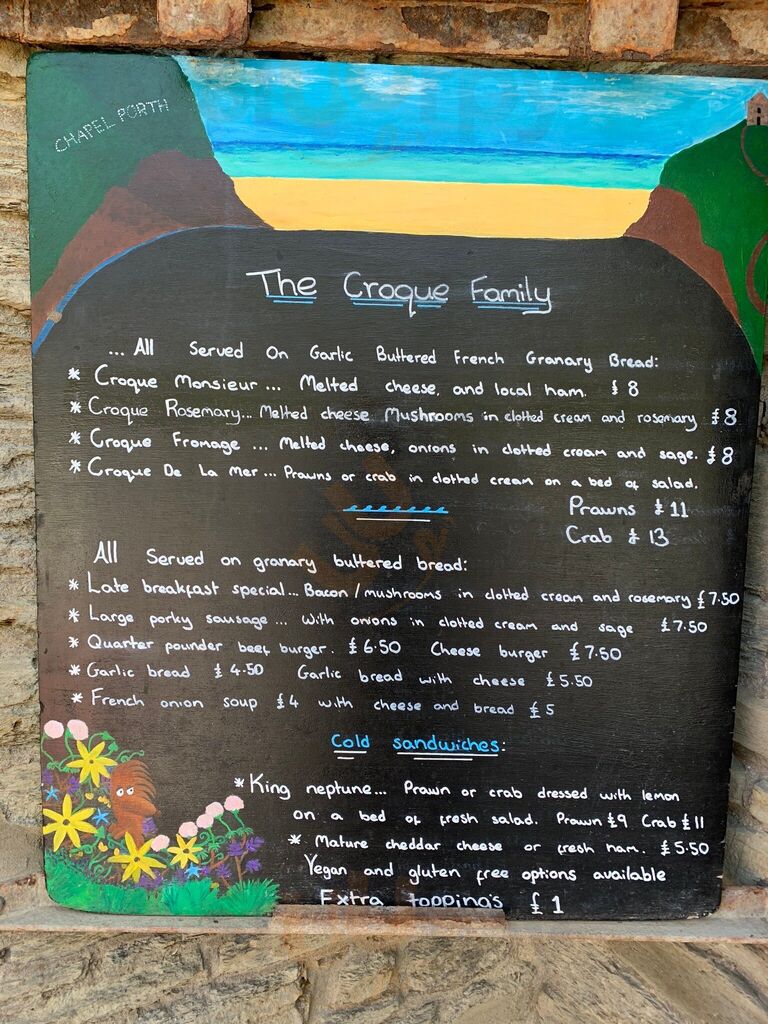 CHAPEL PORTH
The Croque Family
... All Served On Garlic Buttered French Granary Bread:
* Croque Monsieur ... Melted cheese, and local ham. £8
* Croque Rosemary... Melted cheese Mushrooms in clotted cream and rosemary £8
* Croque Fromage ... Melted cheese, onions in clotted cream and sage. £8
* Croque De La Mer ... Prawns or crab in clotted cream on a bed of salad.
Prawns £11
Crab £13
All Served on granary buttered bread:
* Late breakfast special... Bacon/mushrooms in clotted cream and rosemary £7.50
* Large porky sausage ... with onions in clotted cream and sage £7.50
* Quarter pounder beef burger. £6.50 Cheese burger £7.50
* Garlic bread £4.50 Garlic bread with cheese £5.50
* French onion soup £4 with cheese and bread £5
Cold sandwiches:
* King neptune... Prawn or crab dressed with lemon
on a bed of fresh salad. Prawn £9 Crab £11
* Mature cheddar cheese or fresh ham. £5.50
Vegan and gluten free options available
Extra topping's £1